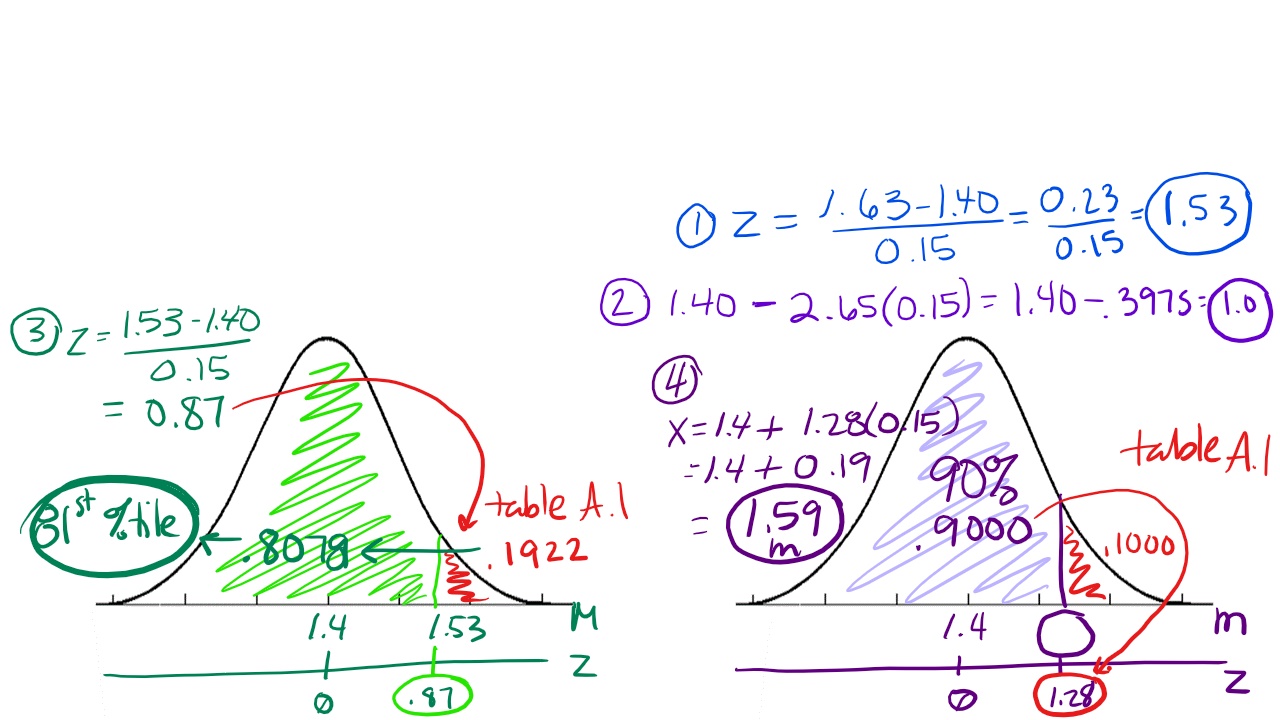 ① Z = 1.63-1.40 / 0.15 = 0.23 / 0.15 = 1.53
② 1.40 - 2.65(0.15) = 1.40 - .3975 = 1.0
③ Z = 1.53-1.40 / 0.15
= 0.87
table A.1
.1922
.8078
81st %tile
1.4 1.53 M
Z
0 .87
④
x = 1.4 + 1.28(0.15)
= 1.4 + 0.19
= 1.59 m
90%
.9000
table A.1
.1000
1.4 m
Z
0 1.28